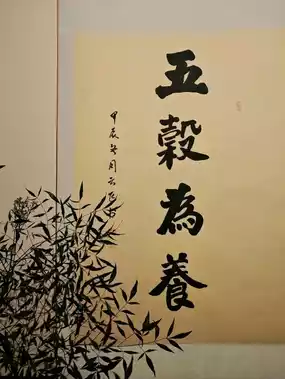 五穀為養
甲辰冬月